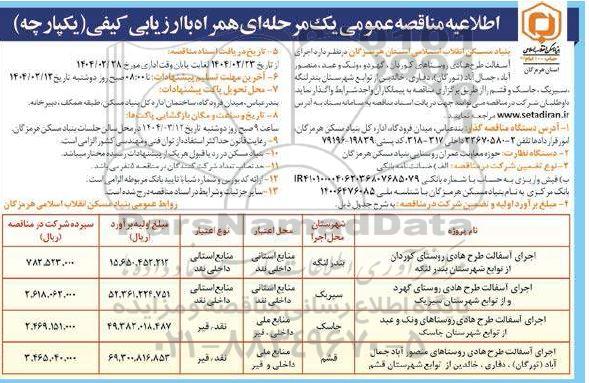 اطلاعیه مناقصه عمومی یک مرحله‌ای همراه با ارزیابی کیفی (یکپارچه)
بنیاد مسکن انقلاب اسلامی
حساب ۱۰۰ امام
استان هرمزگان
بنیاد مسکن انقلاب اسلامی استان هرمزگان در نظر دارد اجرای
آسفالت طرح هادی روستاهای کوردان، گهرد و ونک و عبد، منصور
آباد، جمال آباد (تورگان)، دفاری، خالدین از توابع شهرستان بندر لنگه
، سیریک، جاسک و قشم را از طریق برگزاری مناقصه به پیمانکاران واجد شرایط واگذار نماید.
داوطلبان شرکت در مناقصه می توانند جهت دریافت اسناد مناقصه به سامانه ستاد به آدرس
www.setadiran.ir مراجعه نمایند.
۱- آدرس دستگاه مناقصه گذار: بندرعباس، میدان فرودگاه، اداره کل بنیاد مسکن هرمزگان،
امور قراردادها تلفن ۳-۳۳۶۷۰۵۸۰ داخلی ۳۱۷-۳۱۸ کد پستی ۱۹۸۳۹-۷۹۱۹۶
۲- دستگاه نظارت: حوزه معاونت عمران روستایی بنیاد مسکن هرمزگان
۳- نوع تضمین شرکت در مناقصه: الف) ضمانت نامه بانکی
ب) فیش واریزی به حساب با شماره بانکی
بانک مرکزی به نام بنیاد مسکن هرمزگان با شناسه ملی ۱۴۰۰۶۴۷۶۰۸۵
۴- مبلغ برآورد اولیه و تضمین شرکت در مناقصه: به شرح جدول ذیل.
۵- تاریخ دریافت اسناد مناقصه:
از تاریخ ۱۴۰۴/۰۲/۲۳ لغایت پایان وقت اداری مورخ ۱۴۰۴/۰۲/۲۸
۶- آخرین مهلت تسلیم پیشنهادات: تا ۰۸:۰۰ صبح روز دوشنبه تاریخ ۱۴۰۴/۰۳/۱۲
۷- محل تحویل پاکت پیشنهادات:
بندرعباس، میدان فرودگاه، ساختمان اداره کل بنیاد مسکن، طبقه همکف، دبیرخانه.
۸- تاریخ و ساعت و مکان بازگشایی پاکت ها:
ساعت ۹ صبح روز دوشنبه تاریخ ۱۴۰۴/۰۳/۱۲ در محل سالن جلسات بنیاد مسکن هرمزگان.
۹- رعایت قانون حداکثر استفاده از توان فنی و مهندسی کشور الزامی است.
۱۰- بنیاد مسکن در رد یا قبول هر یک از پیشنهادات رسیده مختار میباشد.
۱۲- ارائه کد بورسی و شماره شبا با تایید بانک مربوطه الزامی است.
۱۳- سایر جزئیات و شرایط در اسناد مناقصه درج شده است.
روابط عمومی بنیاد مسکن انقلاب اسلامی هرمزگان
نام پروژه | شهرستان محل اجرا | محل اعتبار | نوع اعتبار | مبلغ اولیه برآورد (ریال) | سپرده شرکت در مناقصه (ریال)
اجرای آسفالت طرح هادی روستای کوردان از توابع شهرستان بندر لنگه | بندر لنگه | منابع استانی داخلی نقد | منابع استانی داخلی نقد | ۱۵,۶۵۰,۴۵۲,۲۱۲ | ۷۸۲,۵۲۳,۰۰۰
اجرای آسفالت طرح هادی روستای گهرد و از توابع شهرستان سیریک | سیریک | منابع استانی داخلی نقد | منابع استانی داخلی نقد | ۵۲,۳۶۱,۲۲۴,۷۵۱ | ۲,۶۱۸,۰۶۲,۰۰۰
اجرای آسفالت طرح هادی روستاهای ونک و عبد از توابع شهرستان جاسک | جاسک | منابع ملی داخلی، قیر | نقد، قیر | ۴۹,۳۸۳,۰۱۸,۴۸۷ | ۲,۴۶۹,۱۵۱,۰۰۰
اجرای آسفالت طرح هادی روستاهای منصور آباد جمال آباد (تورگان)، دفاری، خالدین از توابع شهرستان قشم | قشم | منابع ملی داخلی و قیر | نقد، قیر | ۶۹,۳۰۰,۸۱۶,۸۵۳ | ۳,۴۶۵,۰۴۰,۰۰۰
ParsNamadData
۰۲۱-۸۸۳۴۹۶۷۰-۵